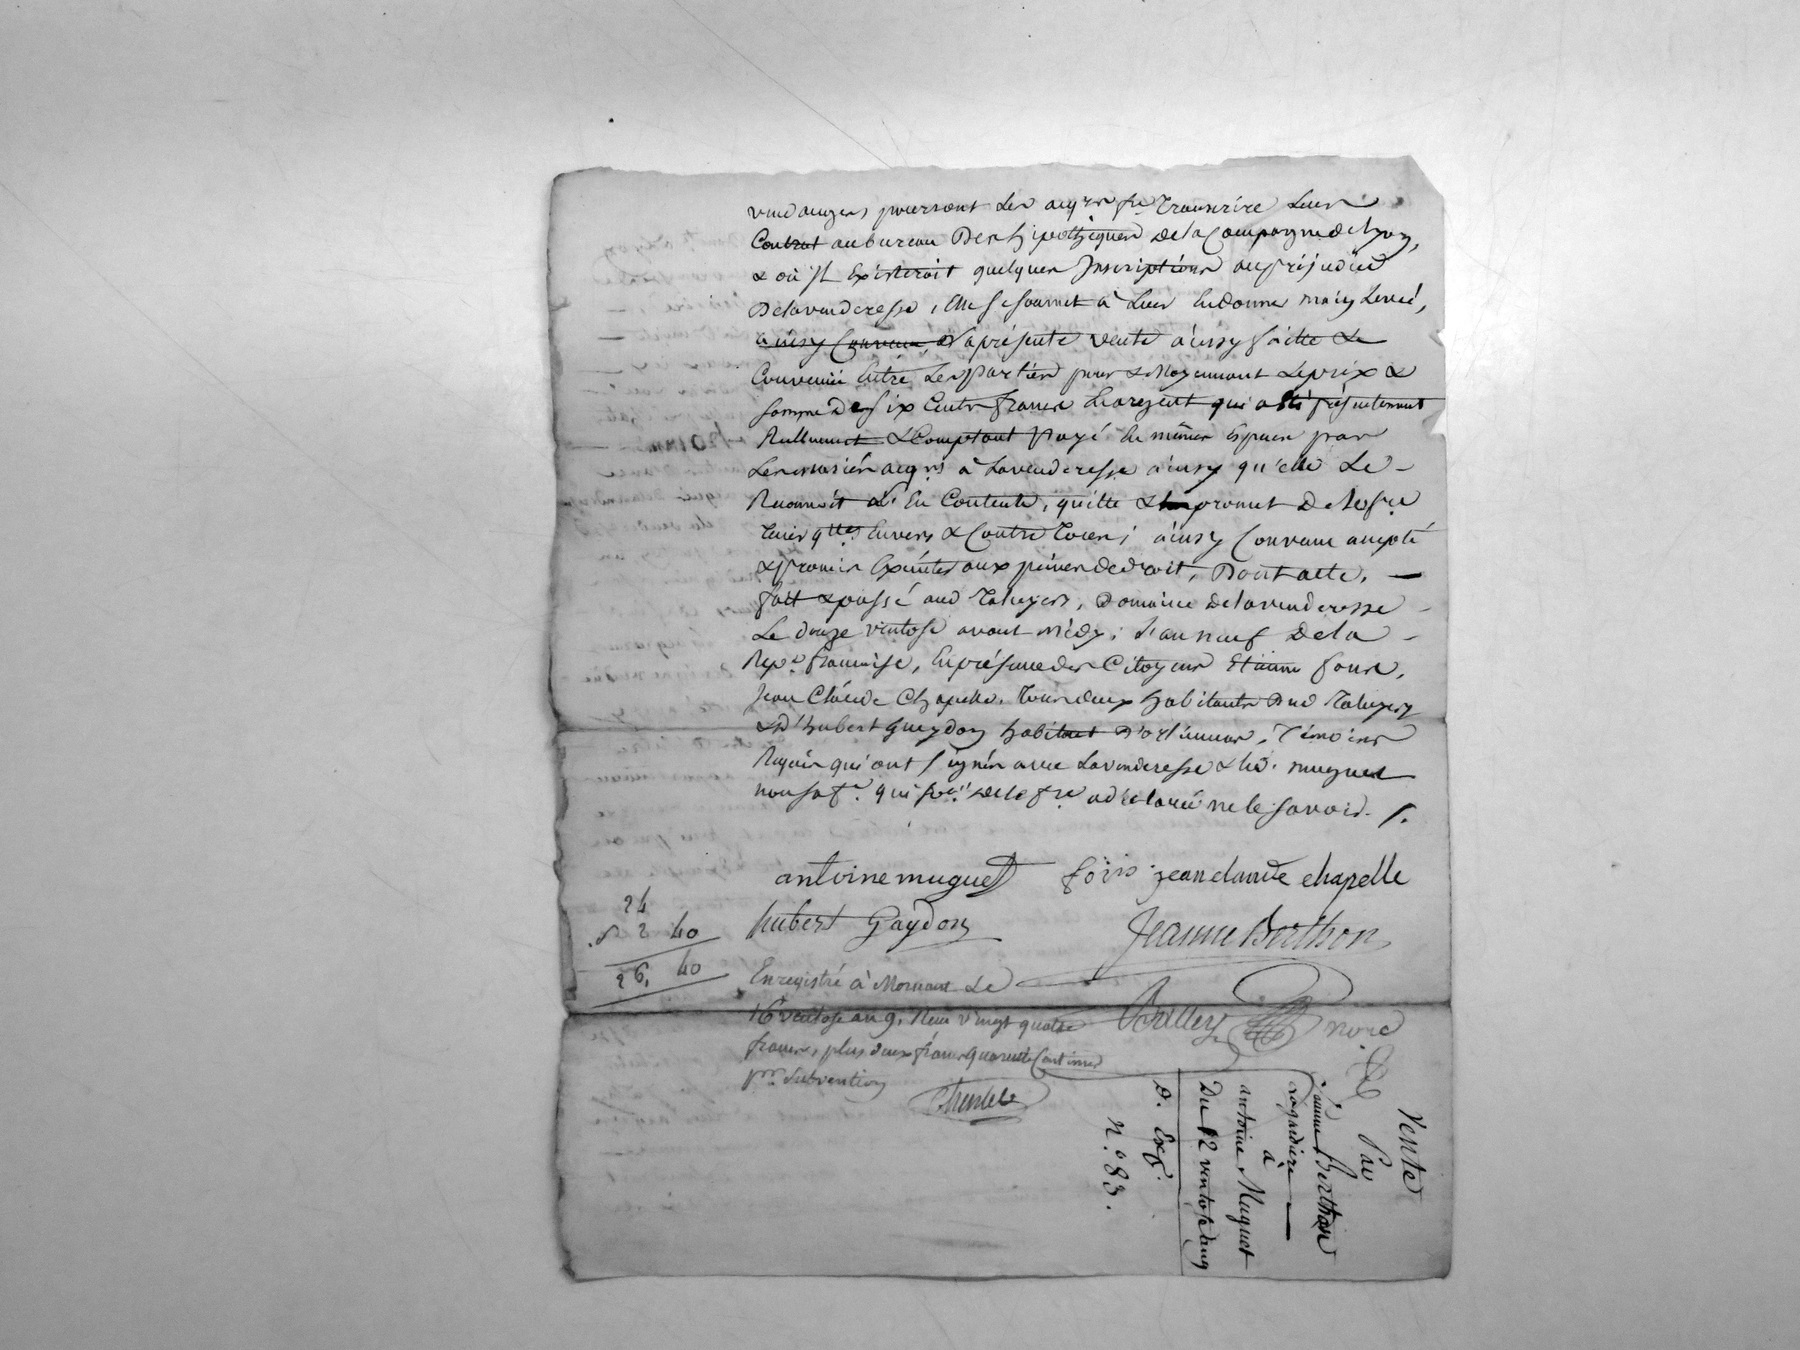 vendanges, pourront les acqrs fre transcrire leur
Contrat au bureau des hipothéques de la Campagne de Lyon,
& où Il Existeroit quelques Inscriptions au préjudice
de la venderesse, elle se soumet à leur en donner main levée,
ainsy Convenu, la présente vente ainsy faitte &
Convenüe Entre les parties pour & Moyennant le prix &
somme de six Cents francs En argent qui a été présentement
Réellement & Comptant Payé En mêmes Espèces par
les mariés acqrs à la venderesse ainsy qu'elle le
Reconnoit & s'En Contente, quitte & promet de le fre
tenir qttes Envers & Contre tous; ainsy Convenu accepté
& promis Exécuter aux peines de droit, Dont acte,
fait & passé aud Taluyers, domaine de la venderesse
Le douze ventose avant midy; l'an neuf de la
Repe française, En présence des Citoyens Etienne foris,
Jean Claude Chapelle, tous deux habitants dud Taluyers
& d'hubert gueydon habitant d'orliénas, Témoins
Requis qui ont signés avec la venderesse & led. muguet
non sa fe. qui de le fre a déclaré ne le savoir.
antoine muguet foris jean claude chapelle
hubert Gaydon Jeanne Berthon
24
2 40
26, 40
Enregistré à Mornant Le
16 ventose an 9, Reçu vingt quatre
francs, plus deux francs quarante Centimes
pr. Subvention
nore
Vente
Par
jeanne Berthon
à
antoine Muguet
Du 12 ventose an 9
D. Exp.
n.° 83.